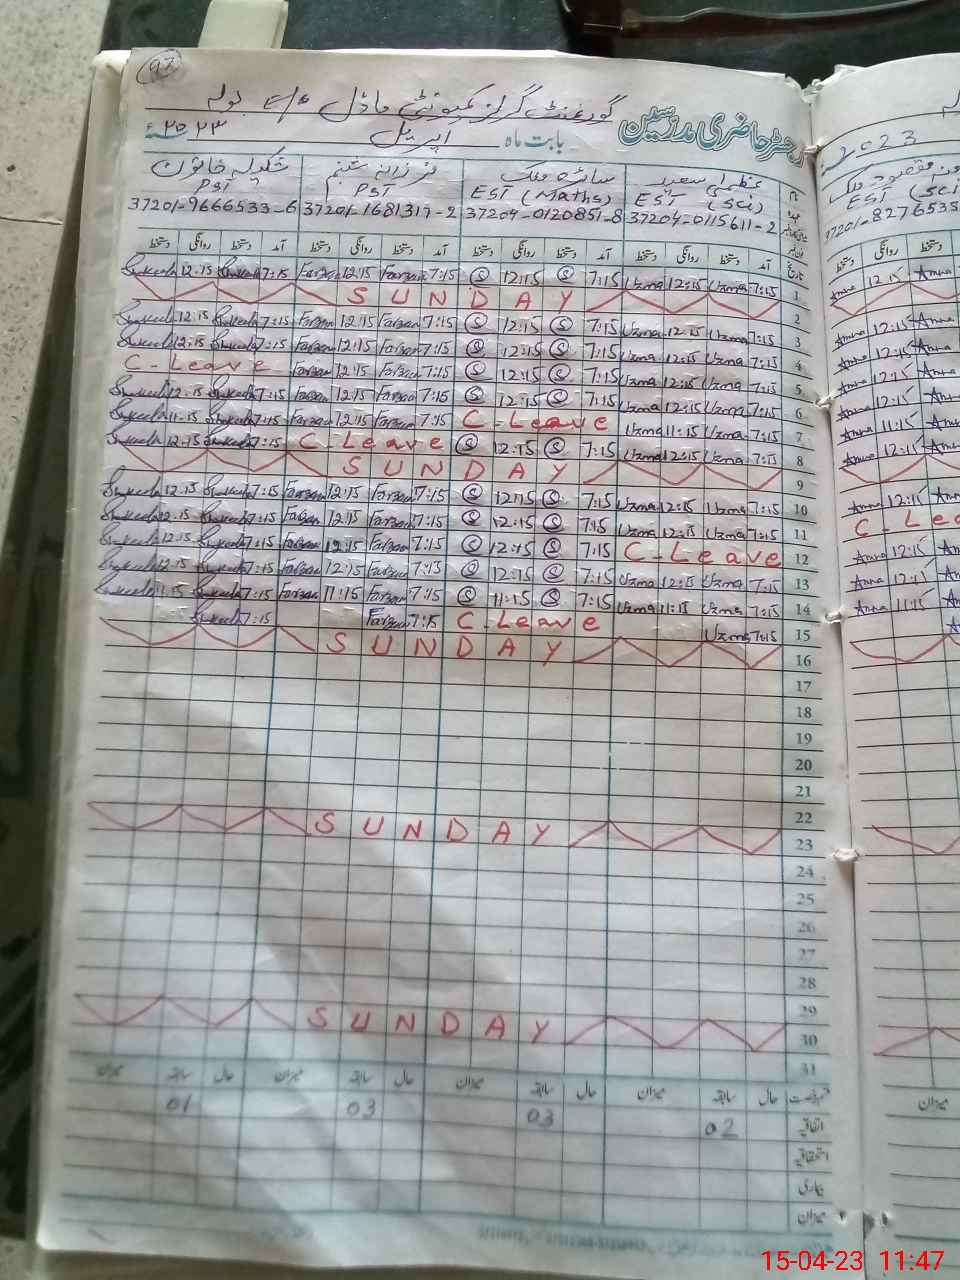 97
گورنمنٹ گرلز کمیونٹی ماڈل E/S بولہ
رجسٹر حاضری مدرسین
بابت ماہ اپریل ۲۰۲۳ء
شکیلہ خاتون فرزانہ شبنم سائرہ ملک عظمیٰ سعید
PST PST EST (Maths) EST (Sci)
37201-9666533-6 37201-1681317-2 37204-0120851-8 37204-0115611-2
دستخط روانگی دستخط آمد دستخط روانگی دستخط آمد دستخط روانگی دستخط آمد دستخط روانگی دستخط آمد تاریخ
Shakeela 12:15 Shakeela 7:15 Farzan 12:15 Farzan 7:15 S 12:15 S 7:15 Uzma 12:15 Uzma 7:15 1
SUNDAY 2
Shakeela 12:15 Shakeela 7:15 Farzan 12:15 Farzan 7:15 S 12:15 S 7:15 Uzma 12:15 Uzma 7:15 3
Shakeela 12:15 Shakeela 7:15 Farzan 12:15 Farzan 7:15 S 12:15 S 7:15 Uzma 12:15 Uzma 7:15 4
C-Leave Farzan 12:15 Farzan 7:15 S 12:15 S 7:15 Uzma 12:15 Uzma 7:15 5
Shakeela 12:15 Shakeela 7:15 Farzan 12:15 Farzan 7:15 S 12:15 S 7:15 Uzma 12:15 Uzma 7:15 6
Shakeela 11:15 Shakeela 7:15 Farzan 12:15 Farzan 7:15 C-Leave Uzma 11:15 Uzma 7:15 7
Shakeela 12:15 Shakeela 7:15 C-Leave S 12:15 S 7:15 Uzma 12:15 Uzma 7:15 8
SUNDAY 9
Shakeela 12:15 Shakeela 7:15 Farzan 12:15 Farzan 7:15 S 12:15 S 7:15 Uzma 12:15 Uzma 7:15 10
Shakeela 12:15 Shakeela 7:15 Farzan 12:15 Farzan 7:15 S 12:15 S 7:15 Uzma 12:15 Uzma 7:15 11
Shakeela 12:15 Shakeela 7:15 Farzan 12:15 Farzan 7:15 S 12:15 S 7:15 C-Leave 12
Shakeela 12:15 Shakeela 7:15 Farzan 12:15 Farzan 7:15 S 12:15 S 7:15 Uzma 12:15 Uzma 7:15 13
Shakeela 11:15 Shakeela 7:15 Farzan 11:15 Farzan 7:15 S 11:15 S 7:15 Uzma 11:15 Uzma 7:15 14
Shakeela 7:15 Farzan 7:15 C-Leave Uzma 7:15 15
SUNDAY 16
17
18
19
20
21
22
SUNDAY 23
24
25
26
27
28
29
SUNDAY 30
31
میزان سابقہ حال میزان سابقہ حال میزان سابقہ حال میزان سابقہ حال قسم رخصت
01 03 03 02 اتفاقیہ
استحقاقیہ
بیماری
میزان
2023
EST (Sci)
37201-8276535
دستخط روانگی دستخط
Amna 12:15 Amna
Amna 12:15 Amna
Amna 12:15 Amna
Amna 12:15 Amna
Amna 12:15 Amna
Amna 11:15 Amna
Amna 12:15 Amna
Amna 12:15
C-Lea
Amna 12:15
Amna 12:15
Amna 11:15
میزان
15-04-23 11:47